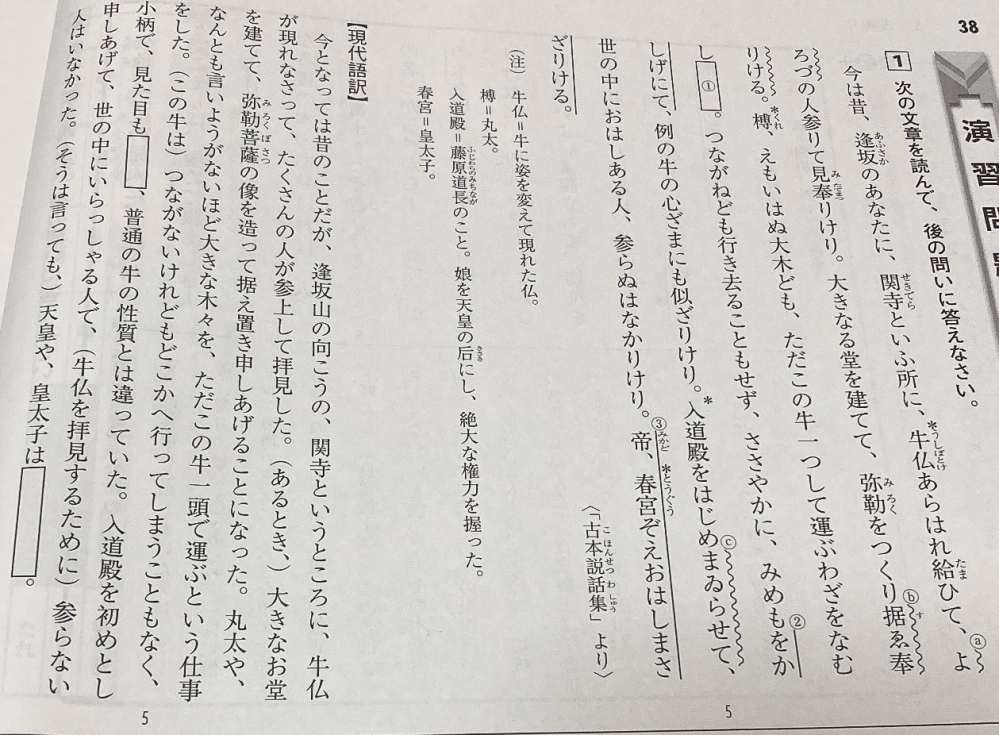 38
演習問
1 次の文章を読んで、後の問いに答えなさい。
今は昔、逢坂のあなたに、関寺といふ所に、*牛仏あらはれ給ひて、ⓐよ
ろづの人参りて見奉りけり。大きなる堂を建てて、弥勒をつくりⓑ据ゑ奉
りける。*榑、えもいはぬ大木ども、ただこの牛一つして運ぶわざをなむ
し①。つながねども行き去ることもせず、ささやかに、みめも②をか
しげにて、例の牛の心ざまにも似ざりけり。*入道殿をはじめⓒまゐらせて、
世の中におはしある人、参らぬはなかりけり。③帝、*春宮ぞえおはしまさ
ざりける。
〈「古本説話集」より〉
(注) 牛仏=牛に姿を変えて現れた仏。
榑=丸太。
入道殿=藤原道長のこと。娘を天皇の后にし、絶大な権力を握った。
春宮=皇太子。
【現代語訳】
今となっては昔のことだが、逢坂山の向こうの、関寺というところに、牛仏
が現れなさって、たくさんの人が参上して拝見した。(あるとき、)大きなお堂
を建てて、弥勒菩薩の像を造って据え置き申しあげることになった。丸太や、
なんとも言いようがないほど大きな木々を、ただこの牛一頭で運ぶという仕事
をした。(この牛は)つながないけれどもどこかへ行ってしまうこともなく、
小柄で、見た目も、普通の牛の性質とは違っていた。入道殿を初めとし
申しあげて、世の中にいらっしゃる人で、(牛仏を拝見するために)参らない
人はいなかった。(そうは言っても、)天皇や、皇太子は。
5
5